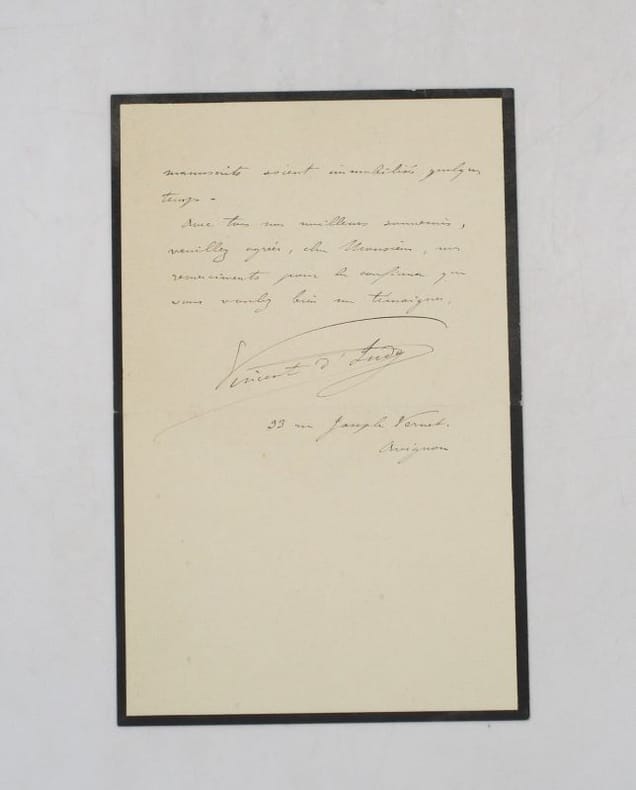 manuscrits soient immobilisés quelque
temps.
Avec tous mes meilleurs souvenirs,
veuillez agréer, cher Monsieur, mes
remerciments pour la confiance que
vous voulez bien me témoigner.
Vincent d'Indy
33 rue Joseph Vernet.
Avignon